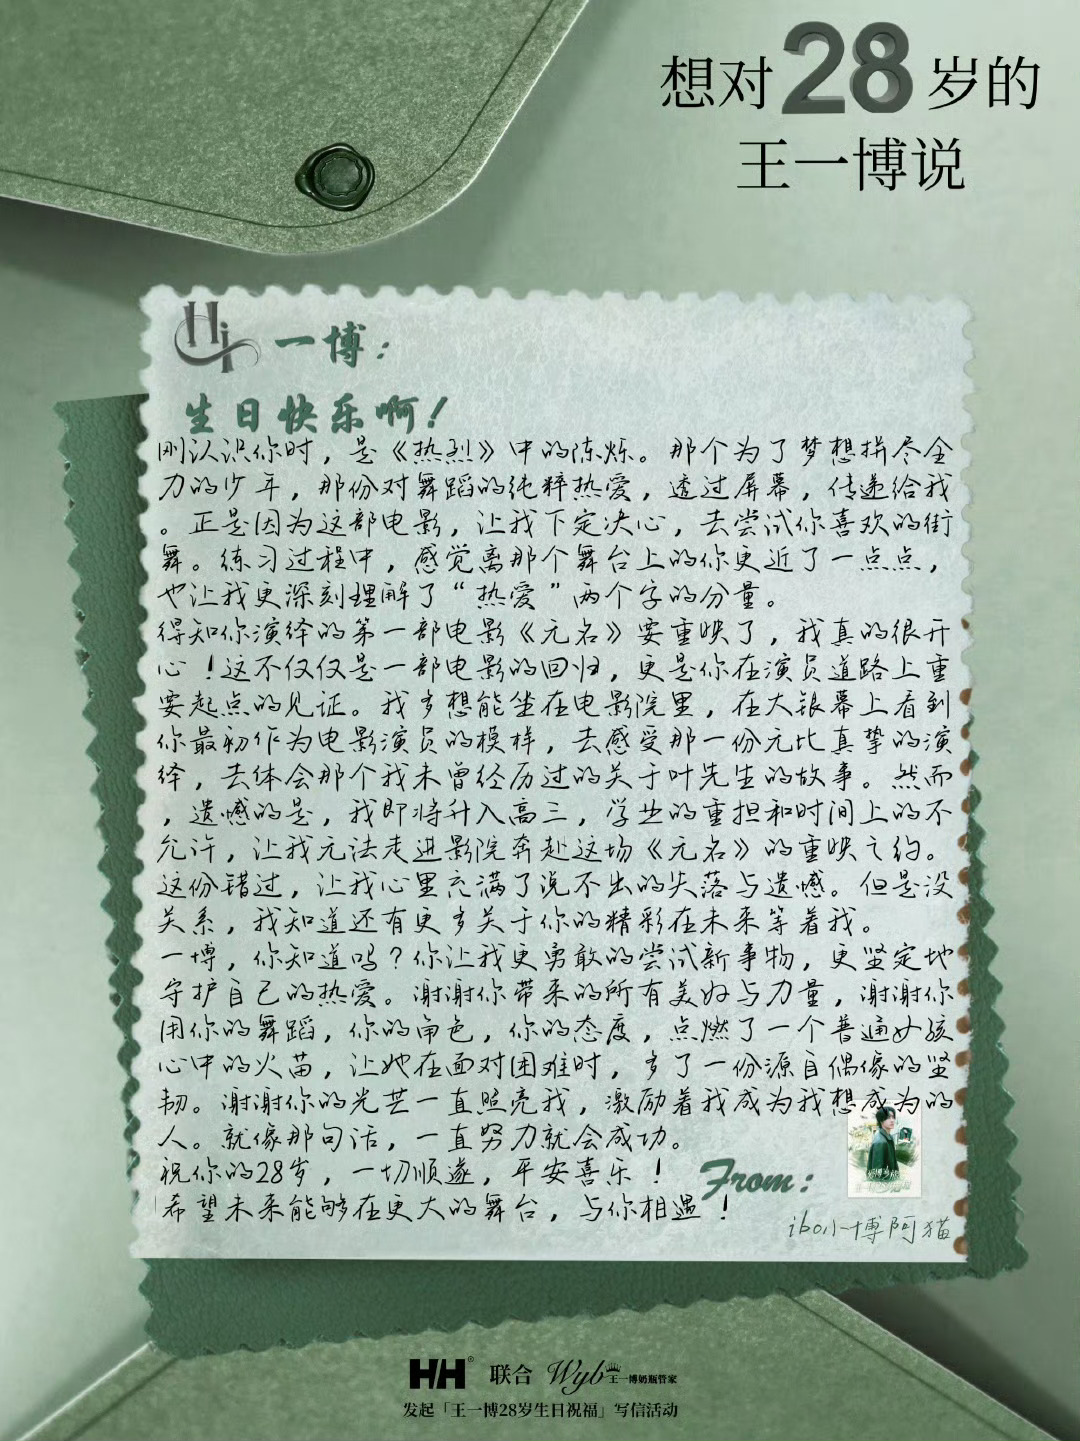 想对28岁的
王一博说
Hi 一博：
生日快乐啊！
刚认识你时，是《热烈》中的陈烁。那个为了梦想拼尽全
力的少年，那份对舞蹈的纯粹热爱，透过屏幕，传递给我
。正是因为这部电影，让我下定决心，去尝试你喜欢的街
舞。练习过程中，感觉离那个舞台上的你更近了一点点，
也让我更深刻理解了“热爱”两个字的分量。
得知你演绎的第一部电影《无名》要重映了，我真的很开
心！这不仅仅是一部电影的回归，更是你在演员道路上重
要起点的见证。我多想能坐在电影院里，在大银幕上看到
你最初作为电影演员的模样，去感受那一份无比真挚的演
绎，去体会那个我未曾经历过的关于叶先生的故事。然而
，遗憾的是，我即将升入高三，学业的重担和时间上的不
允许，让我无法走进影院奔赴这场《无名》的重映之约。
这份错过，让我心里充满了说不出的失落与遗憾。但是没
关系，我知道还有更多关于你的精彩在未来等着我。
一博，你知道吗？你让我更勇敢的尝试新事物，更坚定地
守护自己的热爱。谢谢你带来的所有美好与力量，谢谢你
用你的舞蹈，你的角色，你的态度，点燃了一个普通女孩
心中的火苗，让她在面对困难时，多了一份源自偶像的坚
韧。谢谢你的光芒一直照亮我，激励着我成为我想成为的
人。就像那句话，一直努力就会成功。
祝你的28岁，一切顺遂，平安喜乐！
希望未来能够在更大的舞台，与你相遇！
From：
ibo小博阿猫
HH® 联合 Wyb 王一博奶瓶管家
发起「王一博28岁生日祝福」写信活动